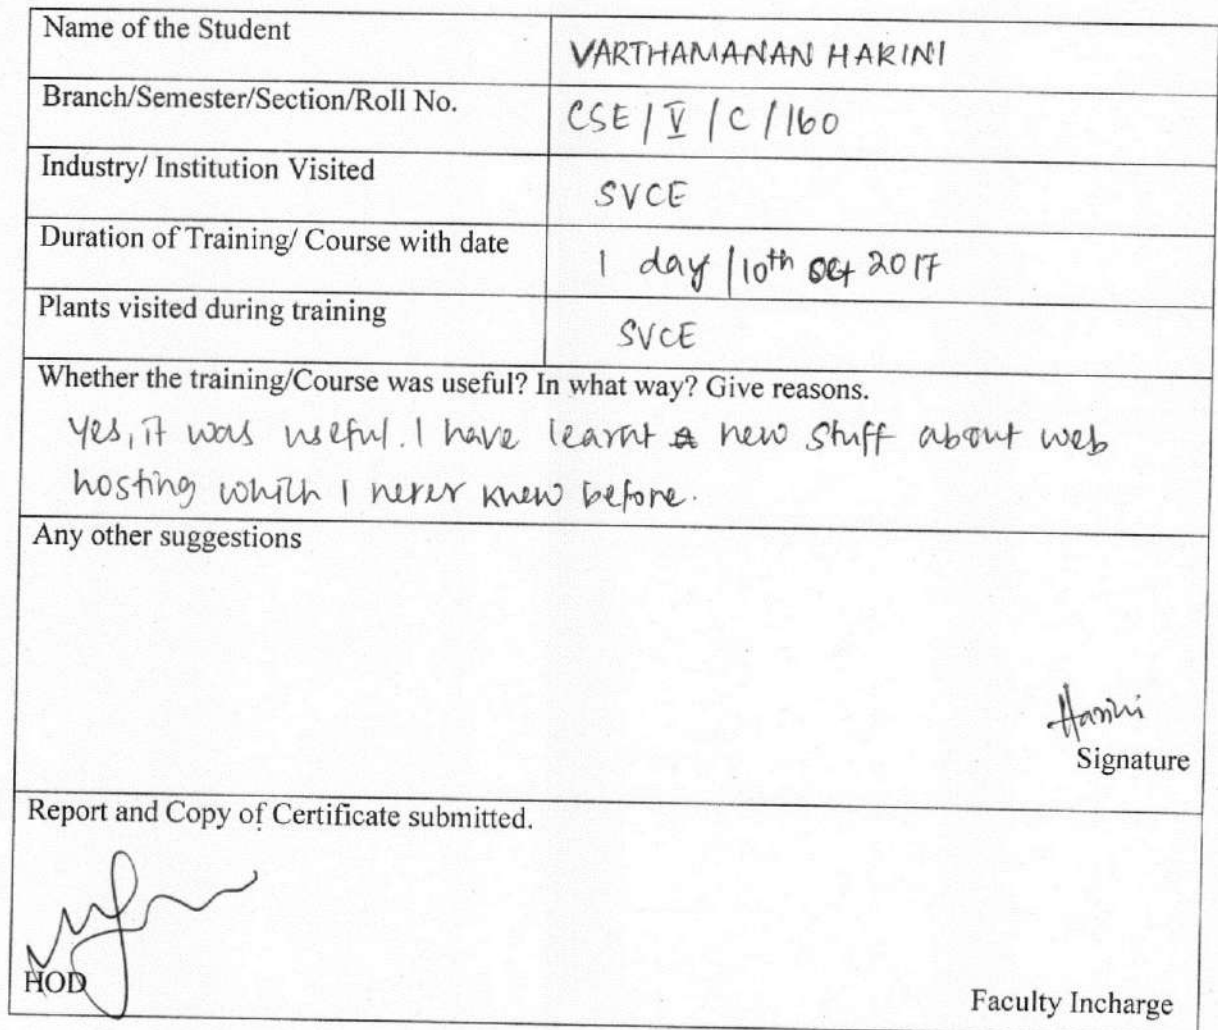 Name of the Student
VARTHAMANAN HARINI
Branch/Semester/Section/Roll No.
CSE / V / C / 160
Industry/ Institution Visited
SVCE
Duration of Training/ Course with date
1 day / 10th 2017
Plants visited during training
SVCE
Whether the training/Course was useful? In what way? Give reasons.
Yes, it was useful. I have learnt new stuff about web
hosting which I never knew before.
Any other suggestions
Harini
Signature
Report and Copy of Certificate submitted.
HOD
Faculty Incharge